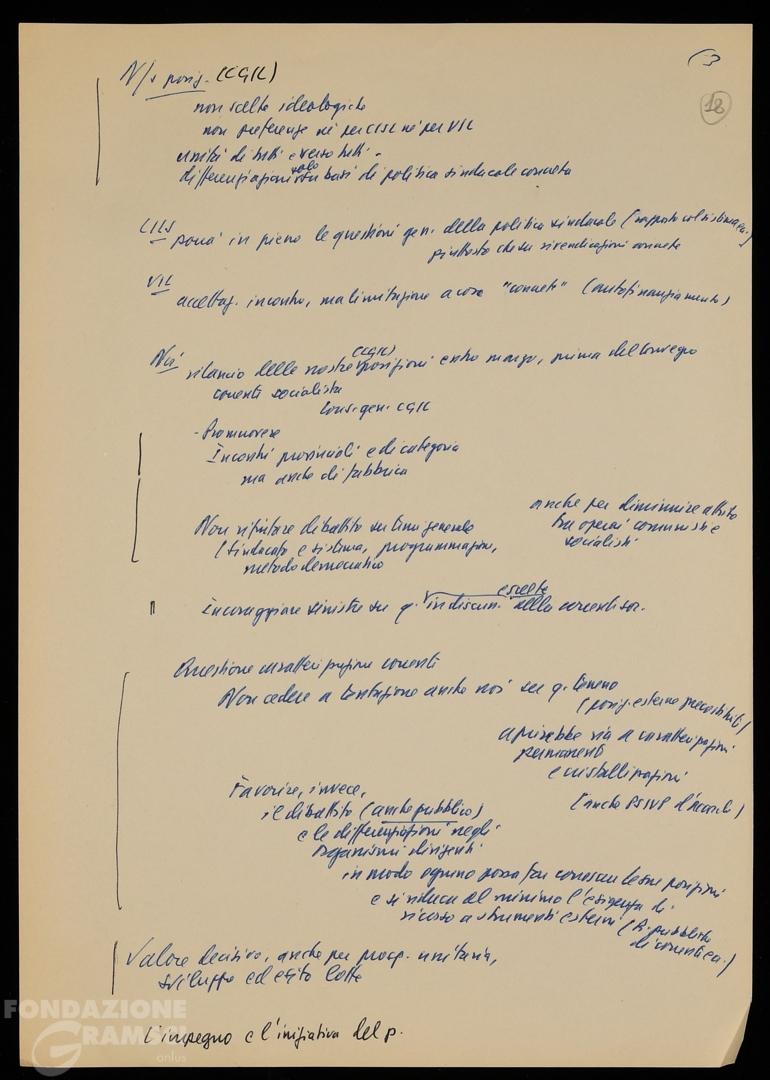 (3
18
N/s posiz. (CGIL)
non scelte ideologiche
non preferenze né per CISL né per UIL
unità di tutti e verso tutti -
solo
differenziazioni su basi di politica sindacale concreta
CISL
porrà in pieno le questioni gen. della politica sindacale (rapporto col sistema ec.)
piuttosto che su rivendicazioni concrete
UIL
accettaz. incontro, ma limitazione a cose "concrete" (autofinanziamento)
Noi
(CGIL)
rilancio delle nostre posizioni entro marzo, prima del Convegno
correnti socialista
Cons. gen. CGIL
- Promuovere
Incontri provinciali e di categoria
ma anche di fabbrica
Non rifiutare dibattito su temi generali
(sindacato e sistema, programmazione,
metodo democratico
anche per diminuire attrito
tra operai comunisti e
socialisti
Incoraggiare sinistre su q. in discuss. della corrente soc.
Questione caratterizzazione correnti
Non cedere a tentazione anche noi su q. terreno
(posiz. esterne precostituite)
aprirebbe via a caratterizzazioni
permanenti
e cristallizzazioni
(anche PSIUP d'accordo)
Favorire, invece,
il dibattito (anche pubblico)
e le differenziazioni negli
organismi dirigenti
in modo ognuno possa far conoscere le sue posizioni
e si riduca al minimo l'esigenza di
ricorso a strumenti esterni
Valore decisivo, anche per prosp. unitaria,
sviluppo ed esito lotte
L'impegno e l'iniziativa del p.
FONDAZIONE
GRAMSCI
onlus